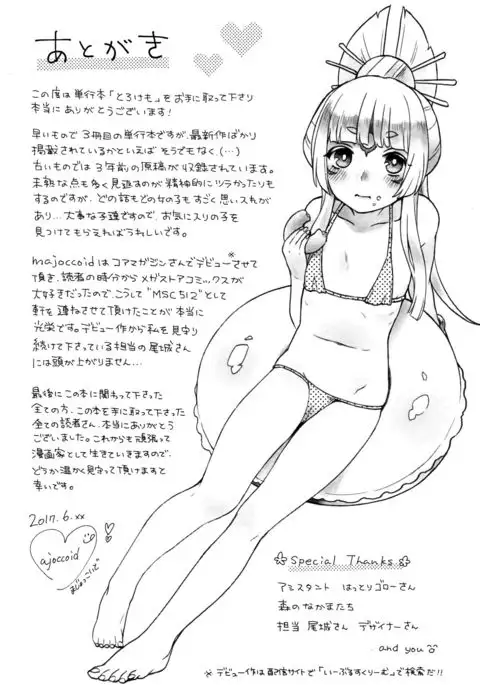 あとがき
この度は単行本「とろけも」をお手に取って下さり
本当にありがとうございます!
早いもので3冊目の単行本ですが、最新作ばかり
掲載されているかといえばそうでもなく(…)
古いものでは3年前の原稿が収録されています。
未熟な点も多く見返すのが精神的にツラかったりも
するのですが、どの話もどの女の子もすごく思い入れが
あり…大事な子達ですので、お気に入りの子を
見つけてもらえればうれしいです。
majoccoidはコアマガジンさんでデビュー※させて
頂き、読者の時分からメガストアコミックスが
大好きだったので、こうして"MSC512"として
軒を連ねさせて頂けたことが本当に
光栄です。デビュー作から私を見守り
続けて下さっている担当の尾城さん
には頭が上がりません…
最後にこの本に関わって下さった
全ての方、この本を手に取って下さった
全ての読者さん、本当にありがとう
ございました。これからも頑張って
漫画家として生きていきますので、
どうか温かく見守って頂けますと
幸いです。
2017.6.xx
ajoccoid
まじょっこいど
Special Thanks
アシスタント はっとりゴローさん
森のなかまたち
担当 尾城さん デザイナーさん
and you
※デビュー作は配信サイトで「いーぶるすくりーむ」で検索だ!!